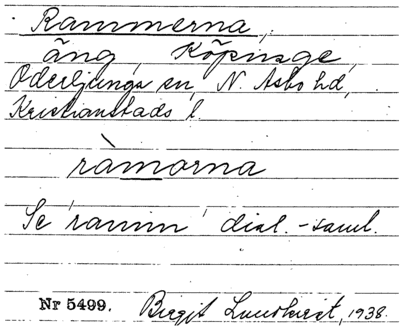 Rammerna,
äng, Köpinge,
Oderljunga sn, N. Åsbo hd,
Kristianstads l.
ràmorna
Se 'ramm' dial.-saml.
Nr 5499. Birgit Lundkvist, 1938.